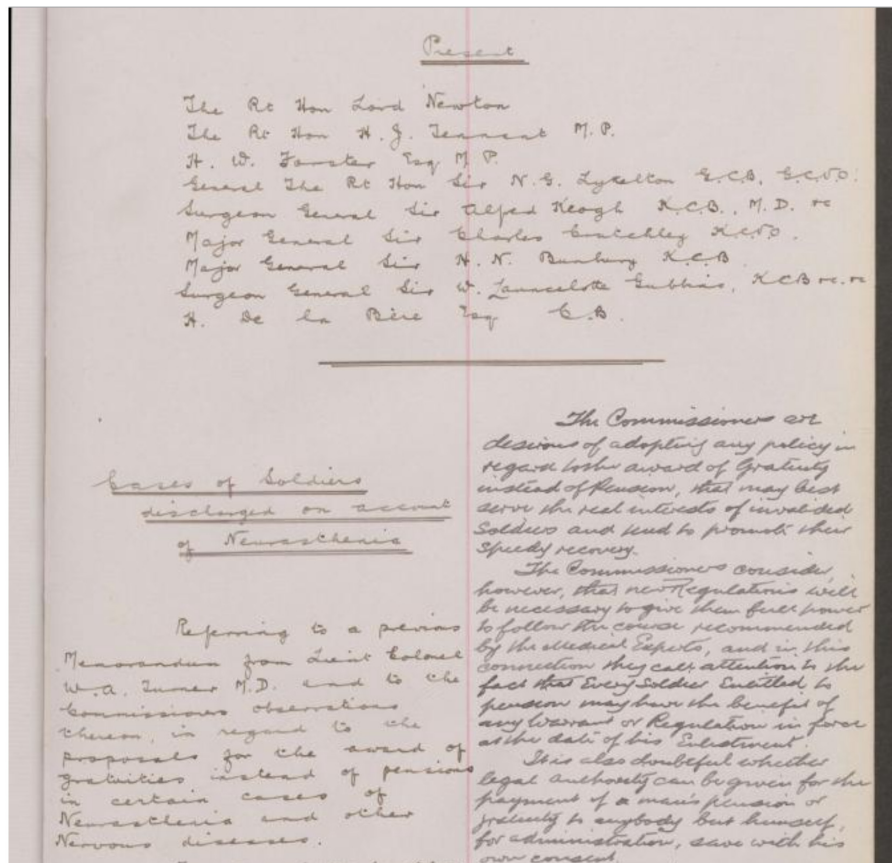 Present
The Rt Hon Lord Newton
The Rt Hon H. J. Tennant M.P.
H. W. Forster Esq M.P.
General The Rt Hon Sir N. G. Lyttelton G.C.B. G.C.V.O.
Surgeon General Sir Alfred Keogh K.C.B., M.D. &c
Major General Sir Charles Crutchley K.C.V.O.
Major General Sir H. N. Bunbury K.C.B.
Surgeon General Sir W. Launcelotte Gubbins, KCB &c. &c
H. De la Bère Esq C.B.
Cases of Soldiers
discharged on account
of Neurasthenia
Referring to a previous
Memorandum from Lieut Colonel
W.A. Turner M.D. and to the
Commissioners observations
thereon, in regard to the
proposals for the award of
gratuities instead of pensions
in certain cases of
Neurasthenia and other
Nervous diseases.
The Commissioners are
desirous of adopting any policy in
regard to the award of Gratuity
instead of Pension, that may best
serve the real interests of invalided
Soldiers and tend to promote their
speedy recovery.
The Commissioners consider,
however, that new Regulations will
be necessary to give them full power
to follow the course recommended
by the Medical Experts, and in this
connection they call attention to the
fact that Every Soldier Entitled to
pension may have the benefit of
any Warrant or Regulation in force
at the date of his Enlistment.
It is also doubtful whether
legal authority can be given for the
payment of a man's pension or
gratuity to anybody but himself,
for administration, save with his
own consent.